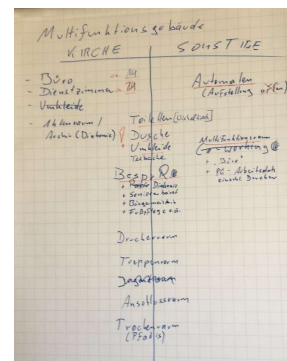 Multifunktionsgebäude
KIRCHE
SONSTIGE
- Büro
- Dienstzimmer
- Umkleide
- Aktenraum /
Archiv (Diakonie)
Automaten
(Aufstellung
Toiletten
Dusche
+ Umkleide
Teeküche
Multifunktionsraum
Co-Working
+ "Büro"
+ PC-Arbeitsplatz
Bespr.
+ Diakonie
+ Seniorenbeirat
+ Bürgermeister
+ Fußpflege o.ä.
Druckerraum
Treppenraum
Anschlussraum
Trockenraum
(Pfadis)